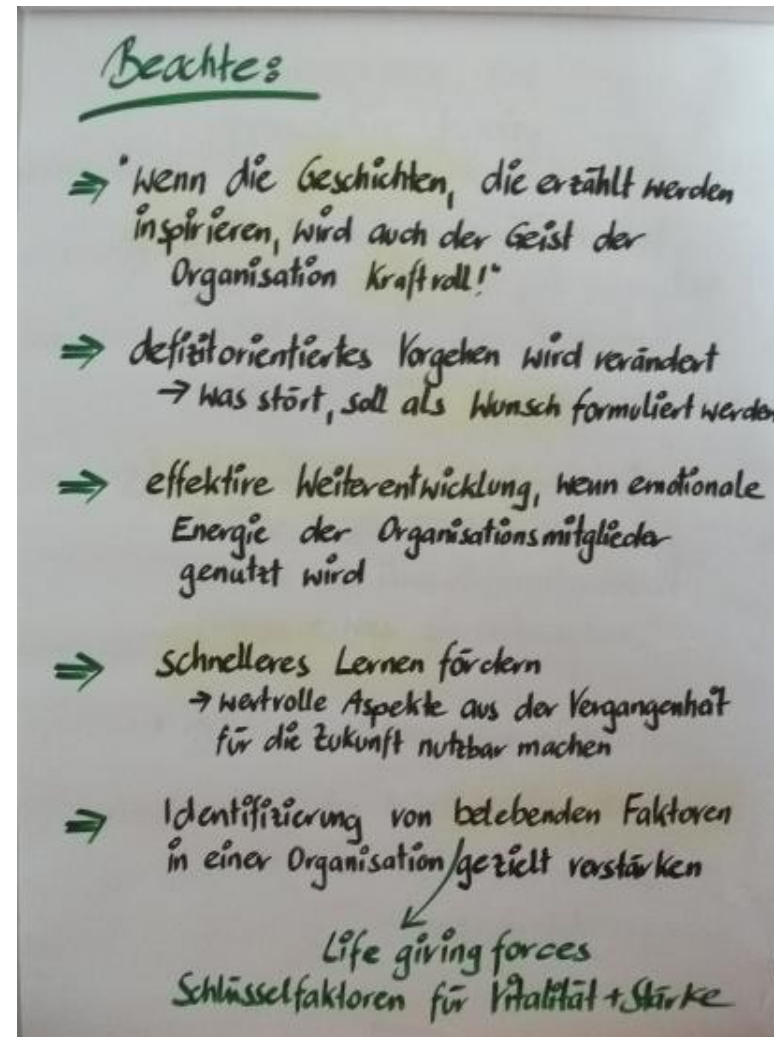 Beachte:
⇒ "Wenn die Geschichten, die erzählt werden
inspirieren, wird auch der Geist der
Organisation Kraftvoll!"
⇒ defizitorientiertes Vorgehen wird verändert
→ Was stört, soll als Wunsch formuliert werden
⇒ effektive Weiterentwicklung, wenn emotionale
Energie der Organisationsmitglieder
genutzt wird
⇒ schnelleres Lernen fördern
→ wertvolle Aspekte aus der Vergangenheit
für die Zukunft nutzbar machen
⇒ Identifizierung von belebenden Faktoren
in einer Organisation/gezielt verstärken
Life giving forces
Schlüsselfaktoren für Vitalität + Stärke